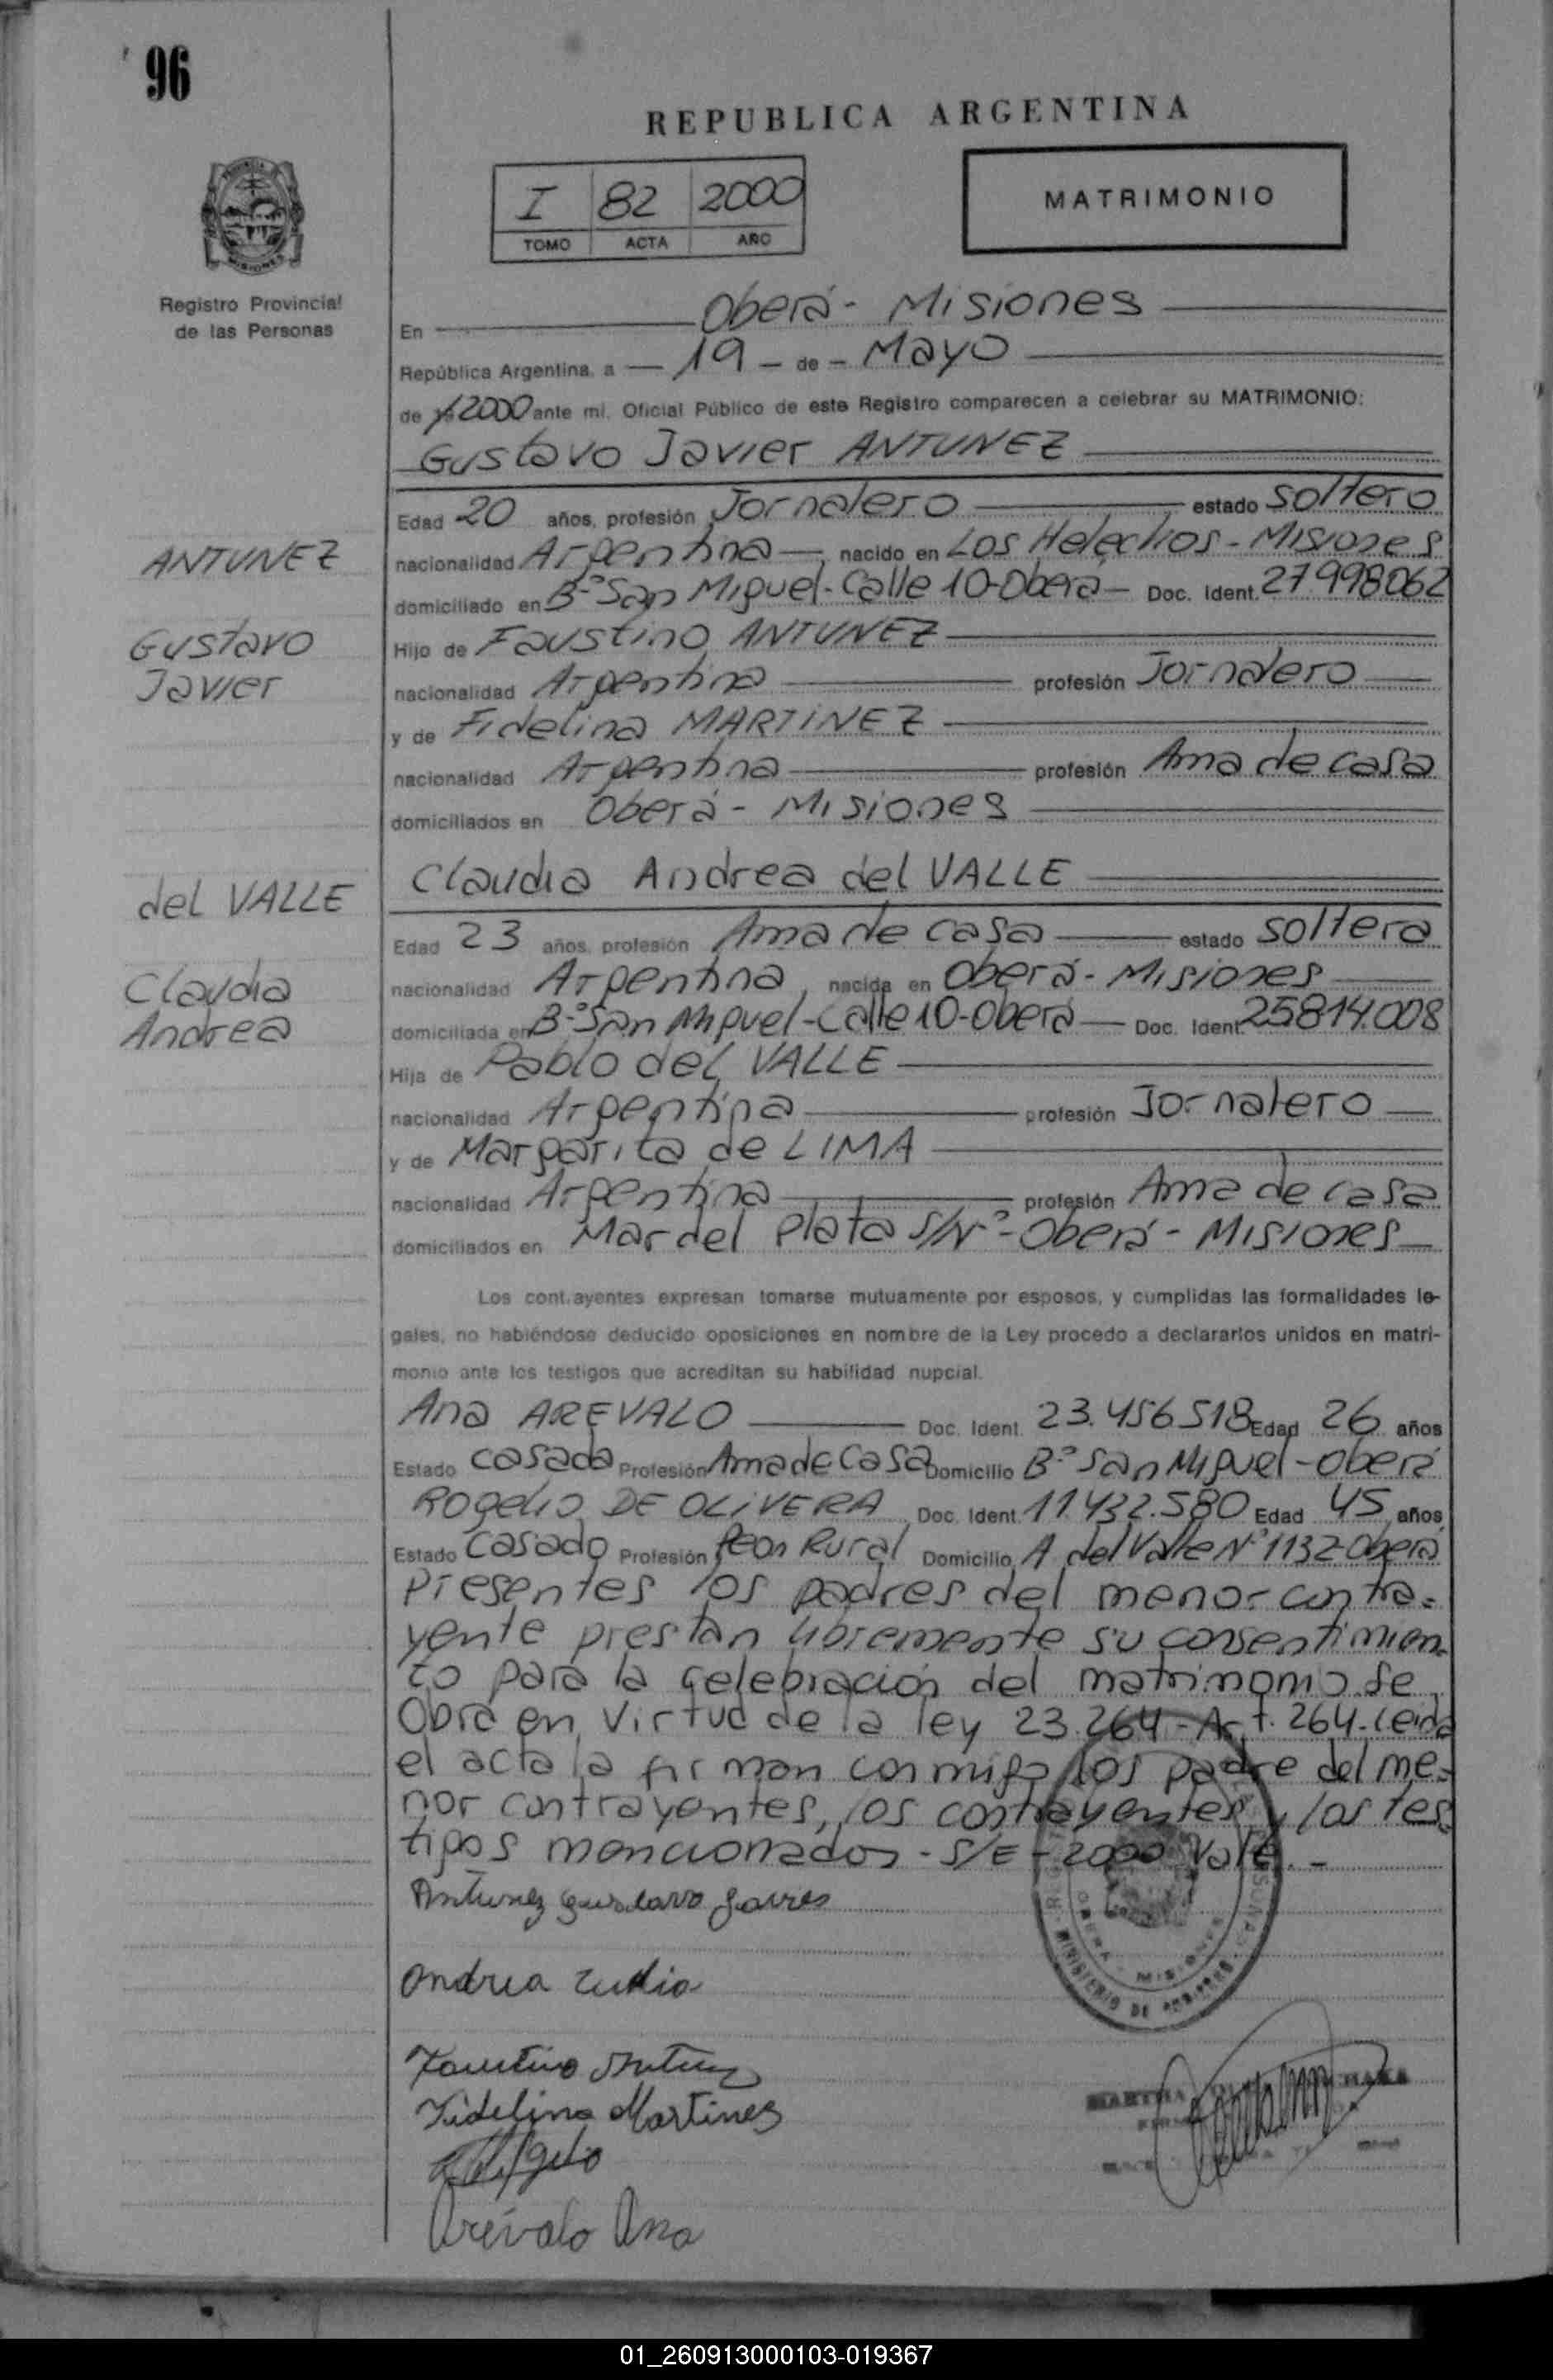 96
REPUBLICA ARGENTINA
I 82 2000
TOMO ACTA AÑO
MATRIMONIO
PROVINCIA
MISIONES
Registro Provincial
de las Personas
En Oberá - Misiones
República Argentina, a 19 - de - Mayo
de 2000 ante mí, Oficial Público de este Registro comparecen a celebrar su MATRIMONIO:
Gustavo Javier ANTUNEZ
Edad 20 años, profesión Jornalero estado soltero
ANTUNEZ
nacionalidad Argentina, nacido en Los Helechos - Misiones
domiciliado en B-º San Miguel - Calle 10 - Oberá - Doc. Ident. 27.998.062
Gustavo
Hijo de Faustino ANTUNEZ
Javier
nacionalidad Argentina profesión Jornalero
y de Fidelina MARTINEZ
nacionalidad Argentina profesión Ama de casa
domiciliados en Oberá - Misiones
del VALLE
Claudia Andrea del VALLE
Edad 23 años, profesión Ama de casa estado soltera
Claudia
nacionalidad Argentina, nacida en Oberá - Misiones
Andrea
domiciliada en B-º San Miguel - Calle 10 - Oberá - Doc. Ident. 25.814.008
Hija de Pablo del VALLE
nacionalidad Argentina profesión Jornalero
y de Margarita de LIMA
nacionalidad Argentina profesión Ama de casa
domiciliados en Mar del Plata S/Nº - Oberá - Misiones
Los contrayentes expresan tomarse mutuamente por esposos, y cumplidas las formalidades le-
gales, no habiéndose deducido oposiciones en nombre de la Ley procedo a declararlos unidos en matri-
monio ante los testigos que acreditan su habilidad nupcial.
Ana AREVALO Doc. Ident. 23.456.518 Edad 26 años
Estado casada Profesión Ama de Casa Domicilio B-º San Miguel - Oberá
Rogelio DE OLIVERA Doc. Ident. 11.432.580 Edad 45 años
Estado Casado Profesión Peon Rural Domicilio A. del Valle Nº 1132 - Oberá
Presentes los padres del menor contra-
yente prestan libremente su consentimien-
to para la celebración del matrimonio. Se
Obra en Virtud de la ley 23.264 - Art. 264. Leida
el acta la firman conmigo los padre del me-
nor contrayentes, los contrayentes y los tes-
tigos mencionados - S/E - 2000 Vale. -
Antunez Gustavo Javier
MINISTERIO DE
OBERA - MISIONES
Andrea
Faustino Antunez
MARTHA
Fidelina Martines
Arévalo Ana
01_260913000103-019367